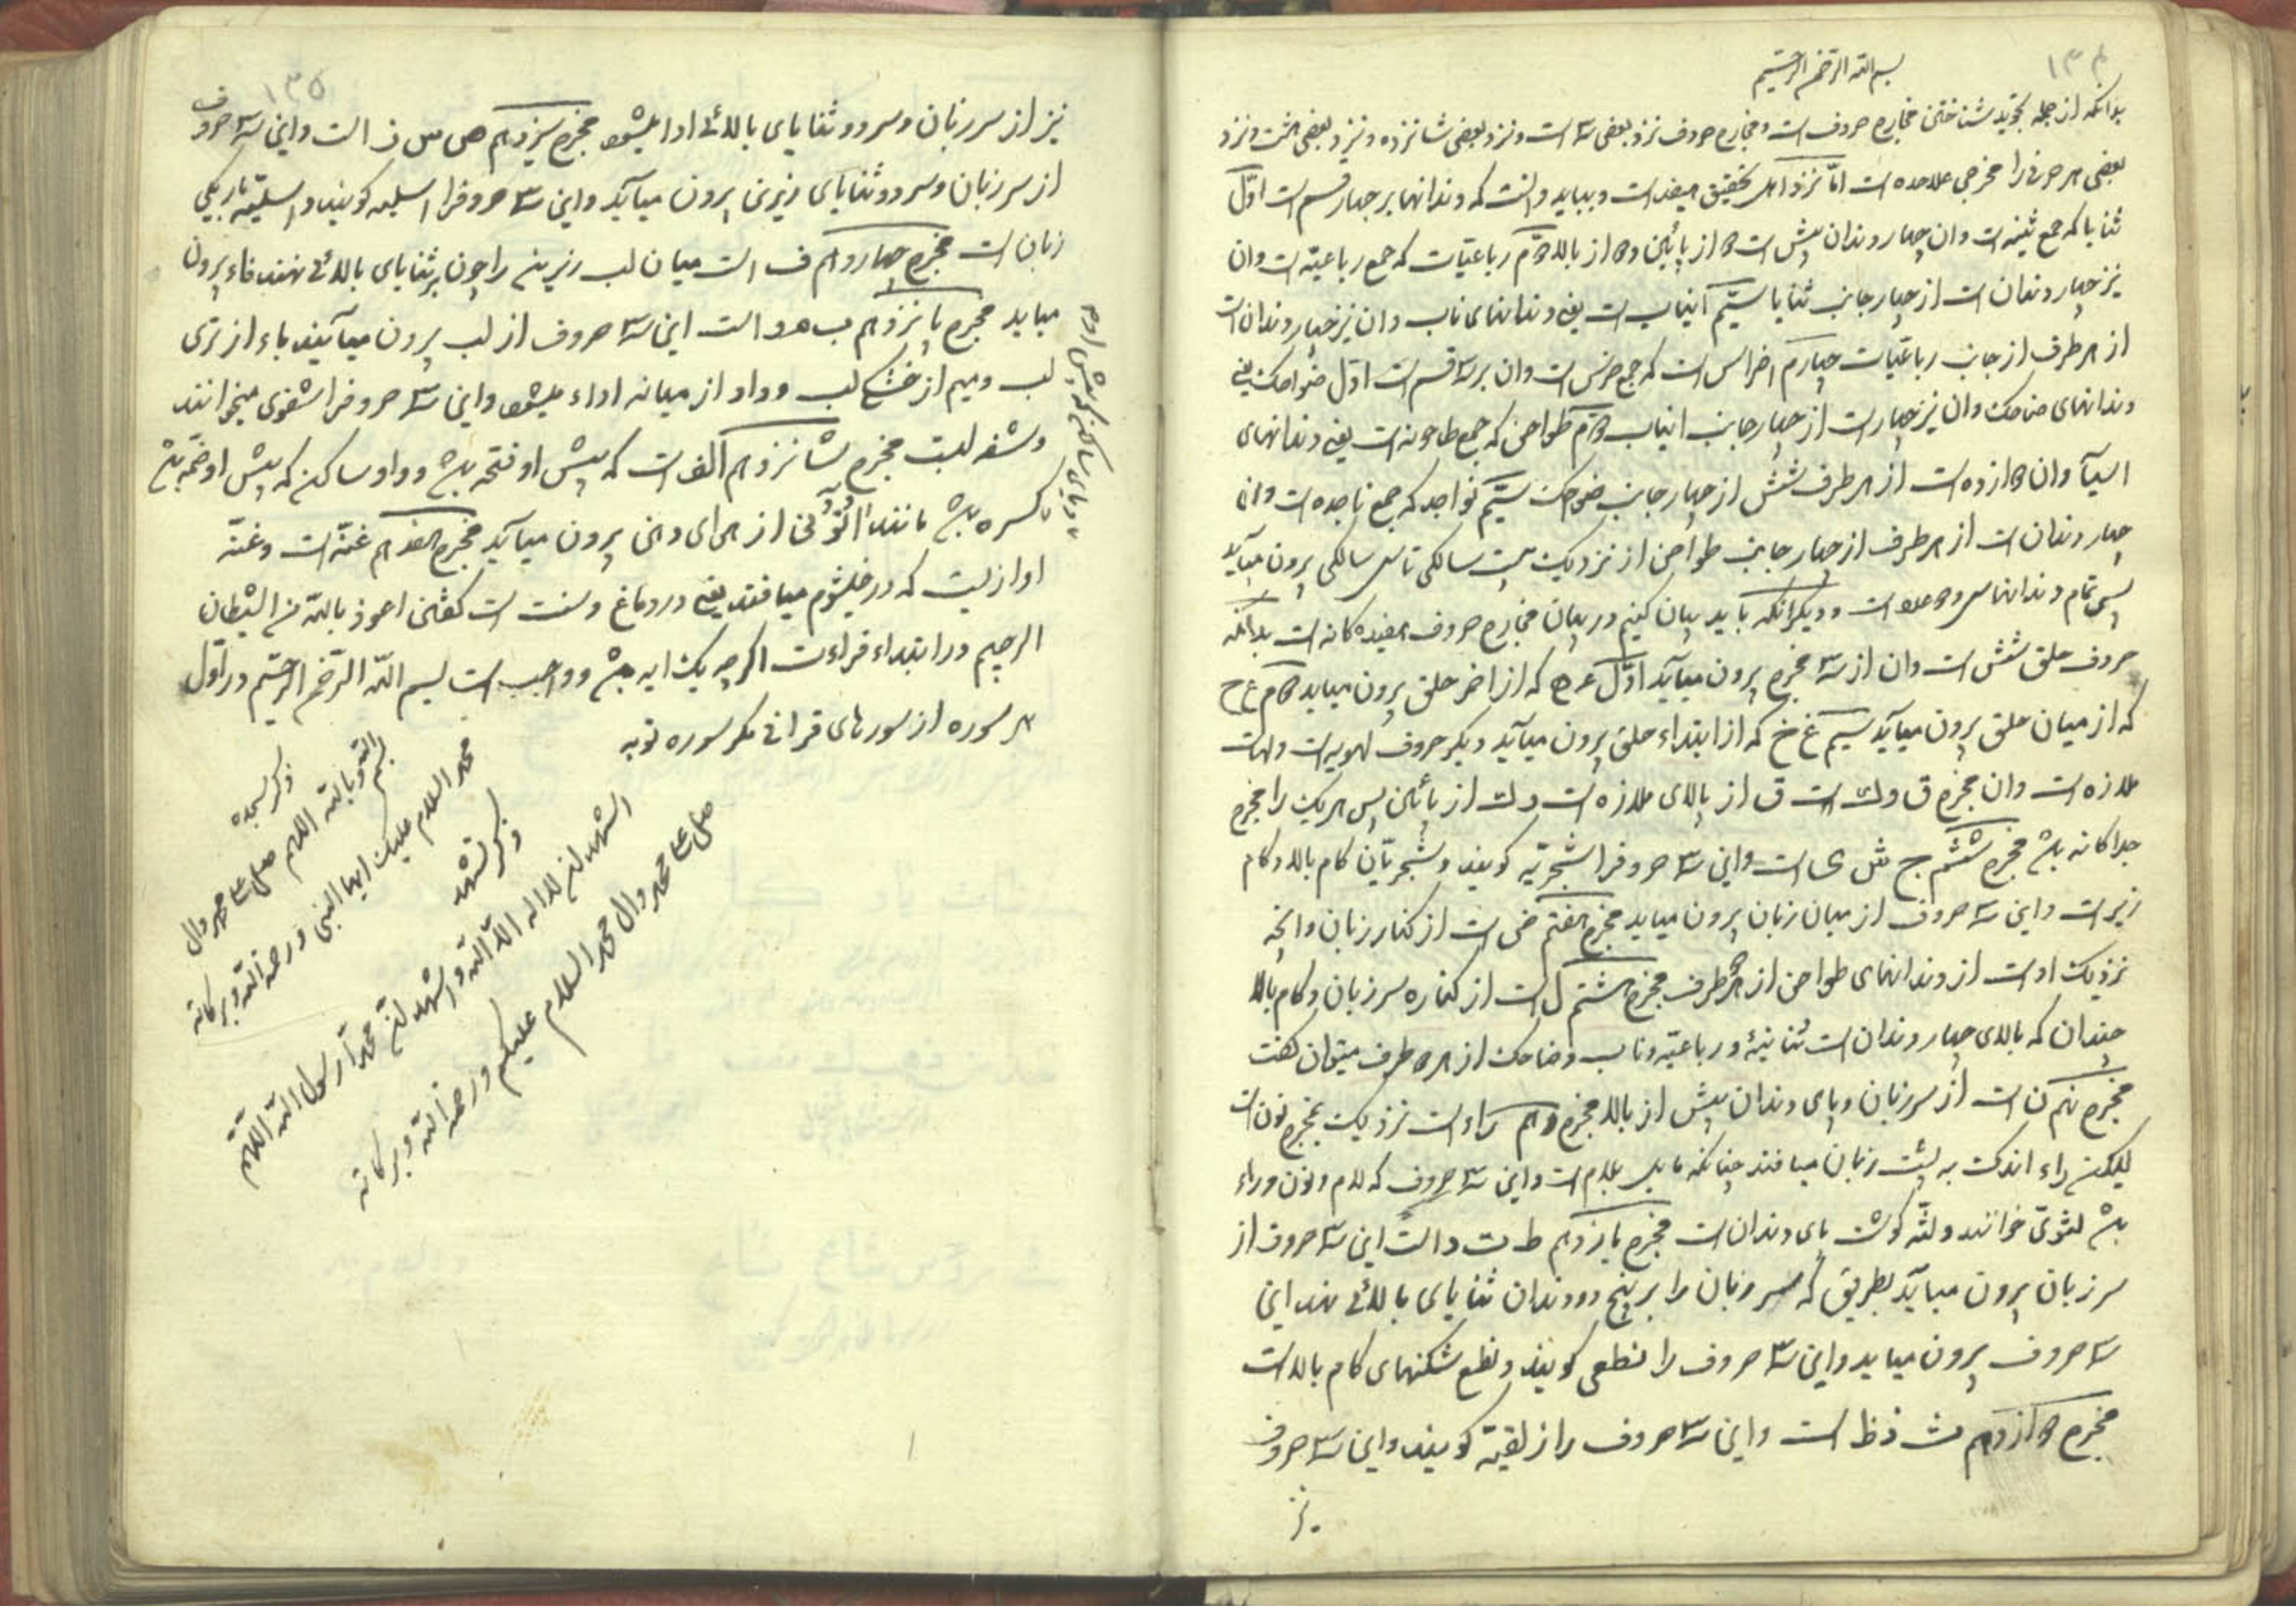 ۱۳۴
بسم الله الرحمن الرحیم
بدانکه از جمله تجوید شناختن مخارج حروف است و مخارج حروف نزد بعضی سه است و نزد بعضی شانزده و نزد بعضی هشت و نزد
بعضی هر حرفی را مخرجی علاحده است امّا نزد اهل تحقیق هیفده است و بباید دانست که دندانها بر چهار قسم است اوّل
ثنایا که جمع ثنیه است وان چهار دندان پیش است ۲ از پائین و۲ از بالا ۲م رباعیّات که جمع رباعیّه است وان
نیز چهار دندان است از چهار جانب ثنایا سیّم انیاب است یعنی دندانهای ناب وان نیز چهار دندان است
از هر طرف از جانب رباعیّات چهارم اضراس است که جمع ضرس است وان بر سه قسم است اوّل ضواحک یعنی
دندانهای ضاحک وان نیز چهار است از چهار جانب انیاب ۲م طواحن که جمع طاحونه است یعنی دندانهای
اسیآ وان ۲ازده است از هر طرف شش از چهار جانب ضواحک سیّم نواجد که جمع ناجده است وان
چهار دندان است از هر طرف از چهار جانب طواحن از نزدیک بیست سالگی تا سی سالگی برون میآید
پس تمام دندانها سی و۲ عدد است و دیگر انکه باید بیان کنیم در بیان مخارج حروف هیفده کانه است بدانکه
حروف حلق شش است وان از سه مخرج برون میآید اوّل ء ه که از اخر حلق برون میاید ۲م ع ح
که از میان حلق برون میآید سیم غ خ که از ابتداء حلق برون میآید دیگر حروف لهویه است ولهات
ملازه است وان مخرج ق وک است ق از بالای ملازه است وک از پائین پس هر یک را مخرج
جداکانه باشد مخرج ششم ج ش ی است واین سه حروفرا شجریّه کویند وشجر بآن کام بالا وکام
زیر است واین سه حروف از میان زبان برون میاید مخرج هفتم ض است از کنار زبان وانچه
نزدیک اوست از دندانهای طواحن از هر۲ طرف مخرج هشتم ل است از کناره سر زبان وکام بالا
چندان که بالای چهار دندان است ثنائیه و رباعیّه وناب وضاحک از هر ۲ طرف میتوان کفت
مخرج نهم ن است از سر زبان وپای دندان پیش از بالا مخرج دهم راء است نزدیک بمخرج نون است
لیکن راء اندک به پشت زبان میافتد چنانکه مایل بلام است واین سه حروف که لام ونون وراء
باشد لثوی خوانند ولثّه کوشت پای دندان است مخرج یازدهم ط ت د است این سه حروف از
سر زبان برون میآید بطریق که سر زبان را بر بیخ دو دندان ثنایای بالائی نهند این
سه حروف برون میاید واین سه حروف را نطعی کویند ونطع شکنهای کام بالا است
مخرج ۲ازدهم ث ذ ظ است واین سه حروف را ذلقیه کویند واین سه حروف
نیز
۱۳۵
نیز از سر زبان وسر دو ثنایای بالائی ادا میشود مخرج سیزدهم ص س ز است واین سه حروف
از سر زبان وسر دو ثنایای زیرین برون میآید واین سه حروفرا اسلیه کویند واسلیّه باریکی
زبان است مخرج چهاردهم ف است میان لب زیرینه را چون بر ثنایای بالائی نهند فاء برون
میاید مخرج پانزدهم ب م و است این سه حروف از لب برون میآیند باء از تری
لب ومیم از خشکی لب وواو از میانه اداء میشود واین سه حروفرا شفوی میخوانند
وشفه لبست مخرج شانزدهم الف است که پیش او فتحه باشد وواو ساکن که پیش او ضمّه باشد
ویای ساکن که پیش او م
کسره باشد مانند اُتُونی از هوای دهن برون میآید مخرج هفدهم غنّه است وغنّه
اوازیست که در خیشوم میافتد یعنی در دماغ وسنت است کفتن اعوذ بالله من الشیطان
الرجیم در ابتداء قراءت اکرچه یک ایه باشد وواجب است بسم الله الرّحمن الرّحیم در اوّل
هر سوره از سورهای قرانی مکر سوره توبه
ذکر سجده
بسم الله وبالله اللهم صل علی محمد وال
محمد السلام علیک ایها النبی ورحمة الله وبرکاته
ذکر تشهد
اشهد ان لا اله الا الله واشهد ان محمداً رسول الله اللهم
صل علی محمد وال محمد السلام علیکم ورحمة الله وبرکاته